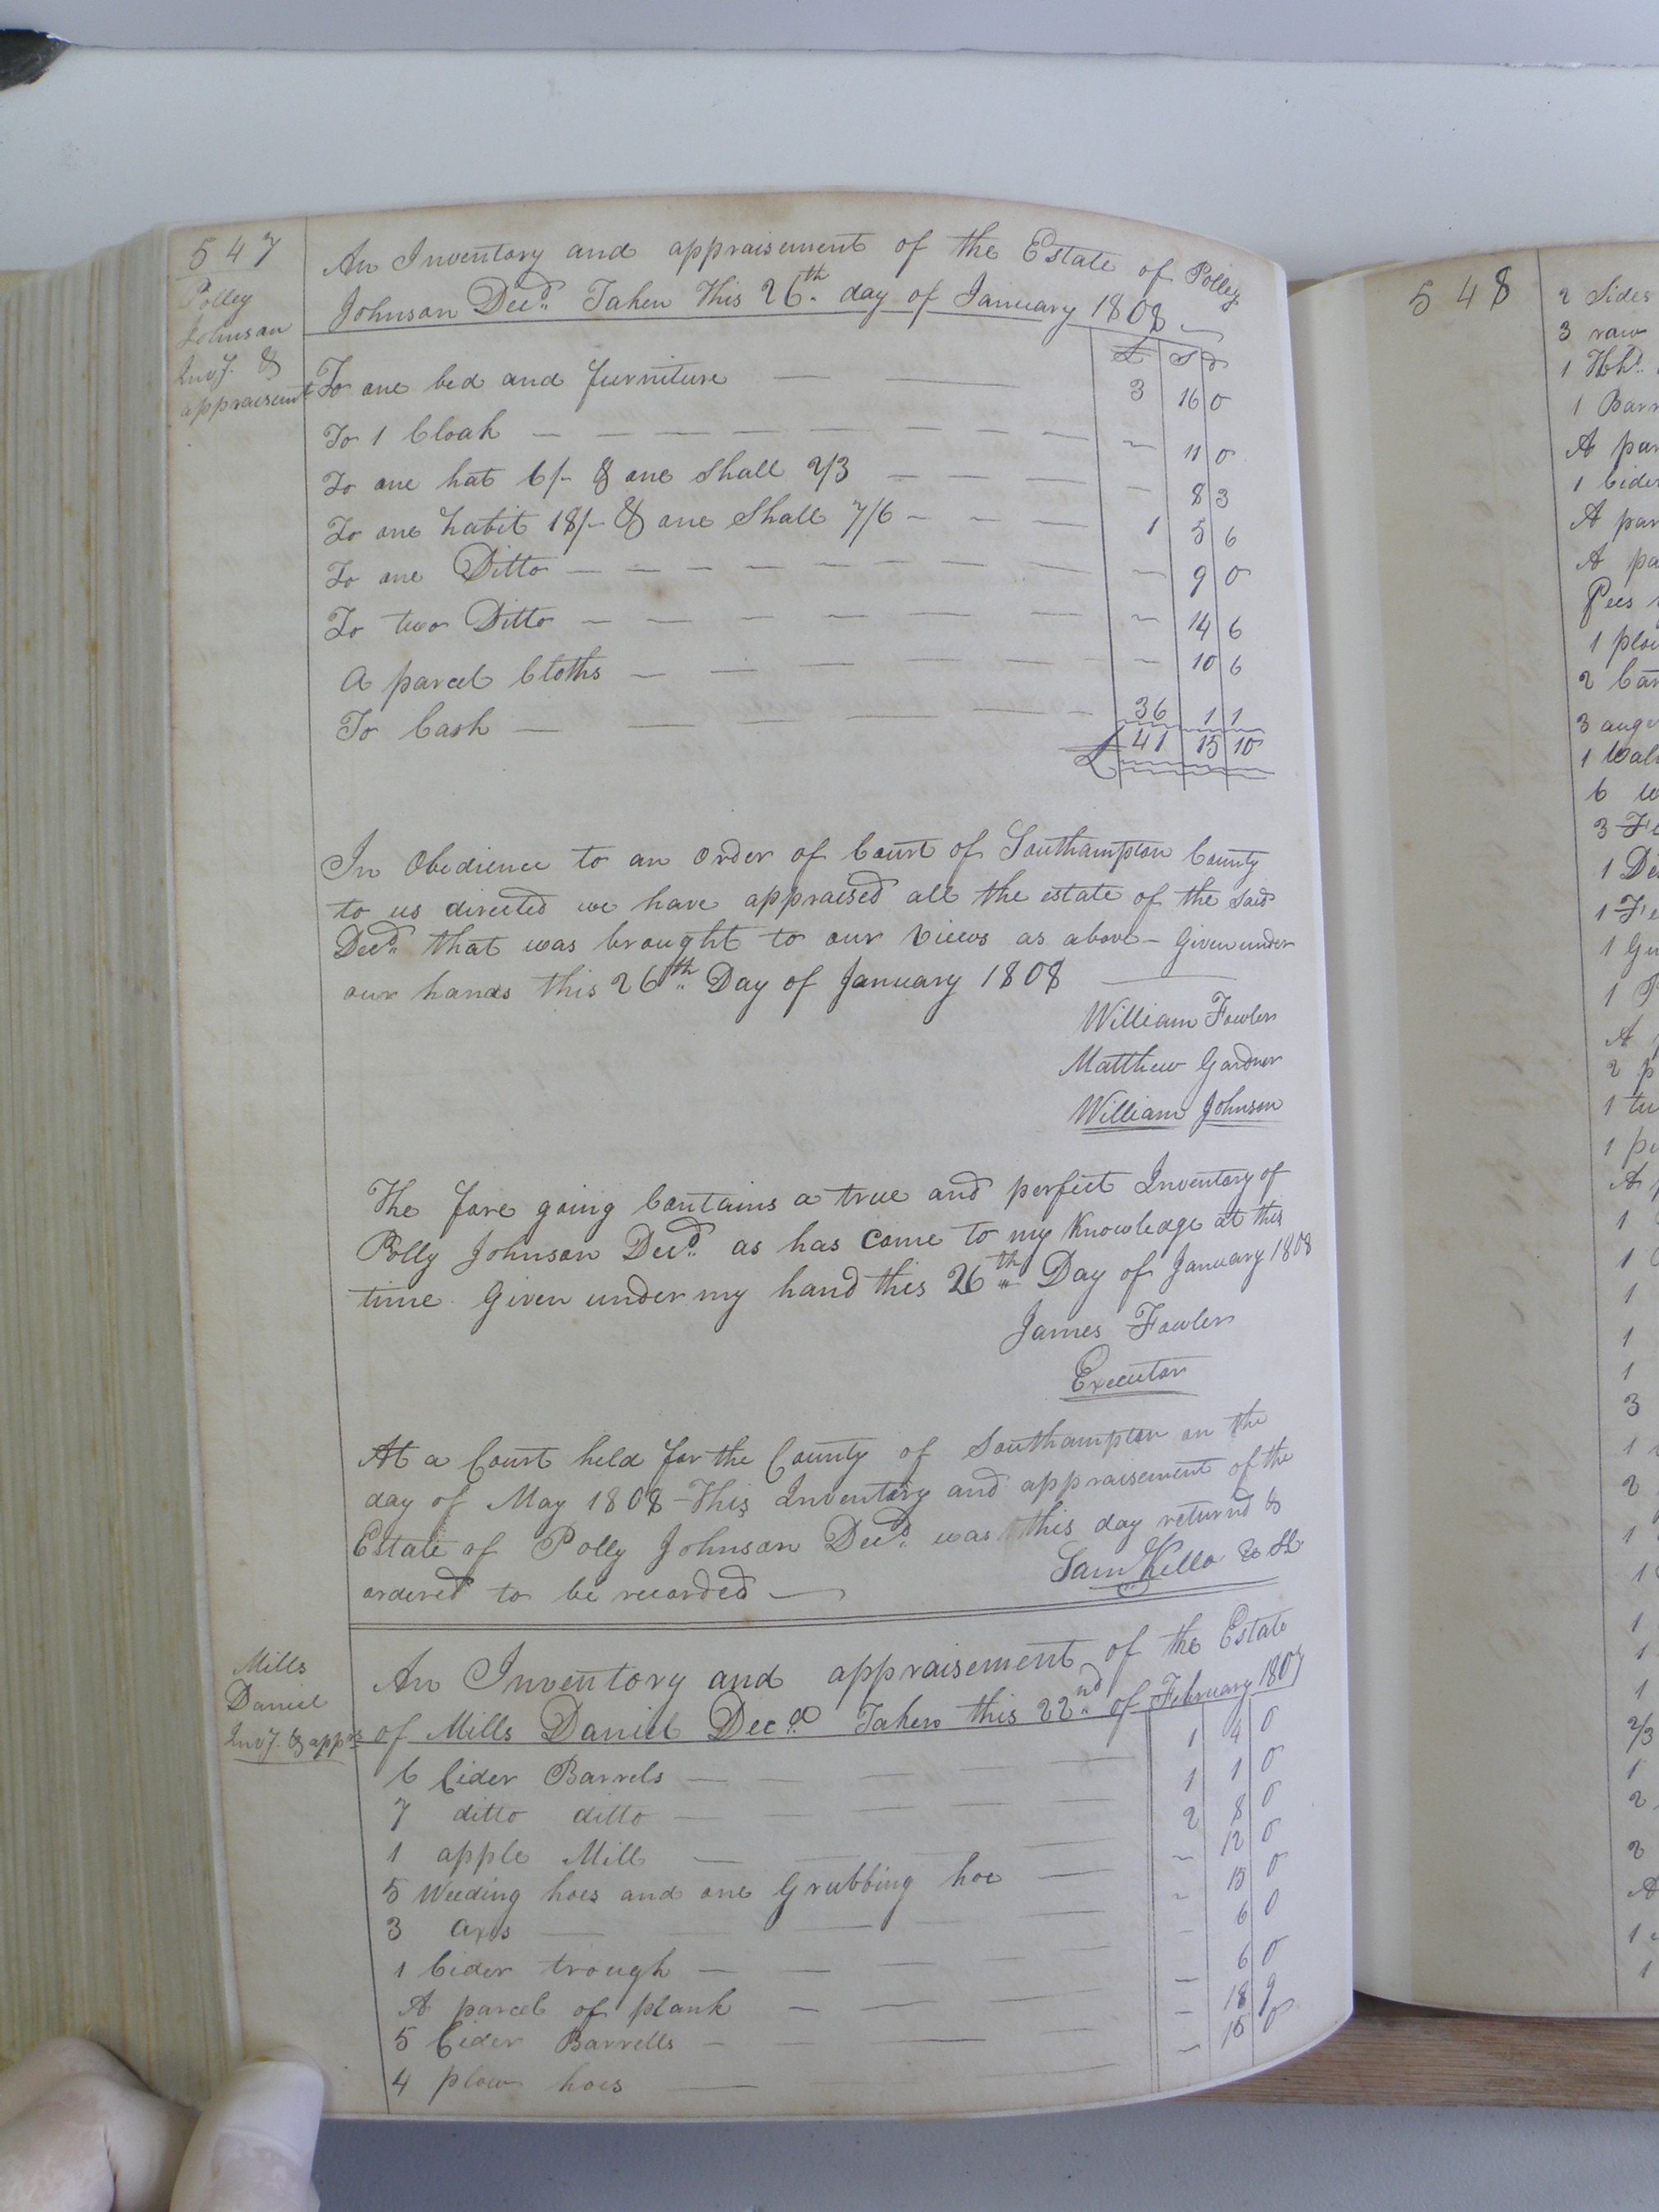 547
Polley
Johnson
Invy. &
appraisemt
An Inventory and appraisement of the Estate of Polley
Johnson Decd. Taken This 26th. day of January 1808
£ S D
To one bed and furniture — — 3 16 0
To 1 Cloak — — — — — — — — ~ 11 0
To one hat 6/- & one Shall 2/3 — — — — 8 3
To one habit 18/- & one Shall 7/6 - - — 1 5 6
To one Ditto — — — — — — — — — 9 0
To two Ditto — — — — — — ~ 14 6
A parcel Cloths — — — — — — ~ 10 6
To Cash — — — — — — 36 1 1
£ 41 15 10
In Obedience to an order of Court of Southampton County
to us directed we have appraised all the estate of the said
Decd. that was brought to our Views as above - Given under
our hands this 26th.. Day of January 1808 —
William Fowler
Matthew Gardner
William Johnson
The fore going Contains a true and perfect Inventory of
Polly Johnson Decd. as has Come to my Knowledge at this
time. Given under my hand this 26th Day of January 1808
James Fowler
Executor
At a Court held for the County of Southampton on the
day of May 1808 - This Inventory and appraisement of the
Estate of Polly Johnson Decd. was this day returnd &
ordered to be recorded —
Sam Kello
Mills
Daniel
Invy. & apprs
An Inventory and appraisement of the Estate
of Mills Daniel Decd. Taken this 22nd.. of February 1807
6 Cider Barrels — — — — 1 4 0
7 ditto ditto — — — — 1 1 0
1 apple Mill — — — 2 8 0
5 Weeding hoes and one Grubbing hoe — ~ 12 0
3 axes — — — ~ 15 0
1 Cider trough — — — - 6 0
A parcel of plank — — — ~ 6 0
5 Cider Barrells — — — - 18 9
4 plow hoes — — — ~ 15 0
548
2 Sides
3 raw
1 Hhd..
1 Barr
A par
1 Cider
A par
A pa
Pees
1 plow
2 Car
3 auge
1 Waln
6 w
3 Fe
1 De
1 Fe
1 Gu
1
A p
2 p
1 tu
1 pe
A p
1
1
1
1
1
3
1
2
1
1
1
1
1
2/3
1
2
2
A
1
1